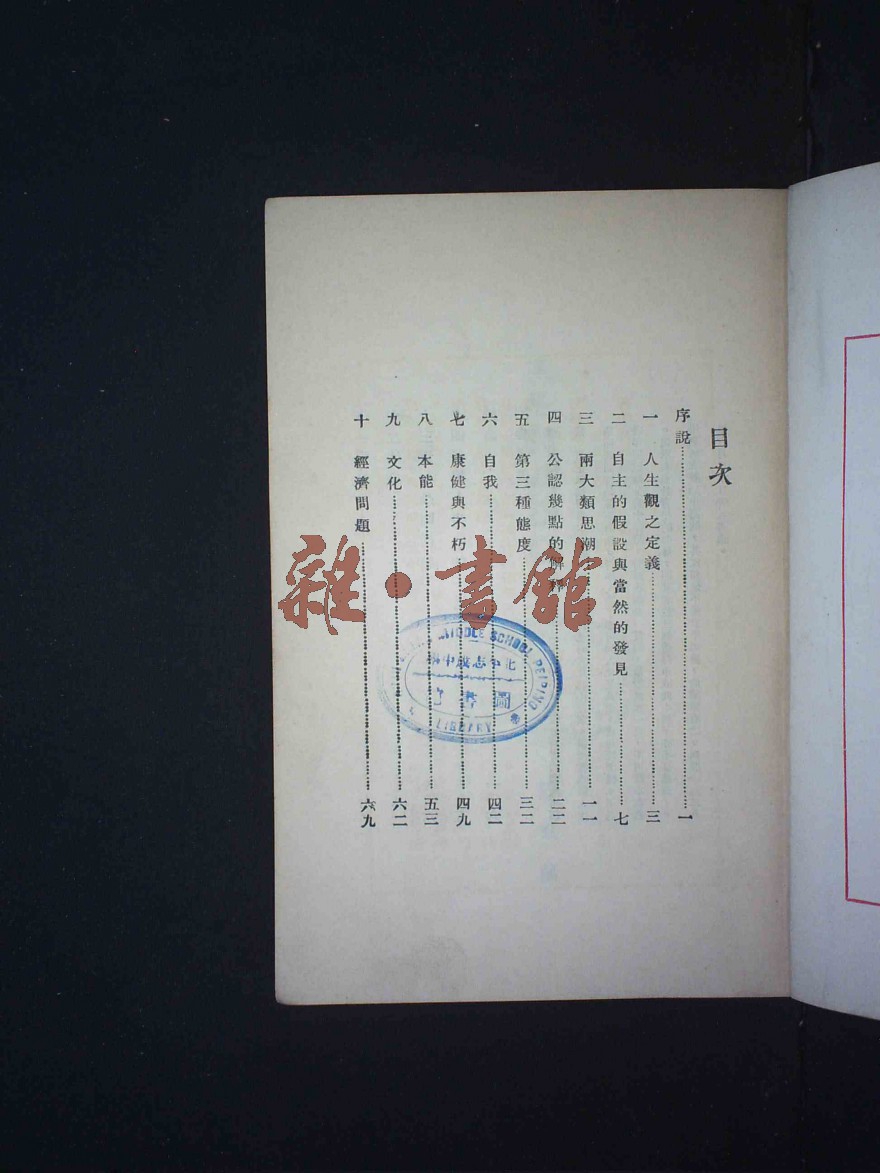 目次
序說一
一 人生觀之定義三
二 自主的假設與當然的發見七
三 兩大類思潮一一
四 公認幾點的解釋二二
五 第三種態度三二
六 自我四二
七 康健與不朽四九
八 本能五三
九 文化六二
十 經濟問題六九
雜·書館
MIDDLE SCHOOL PEIPING
北平志成中學
圖書
LIBRARY